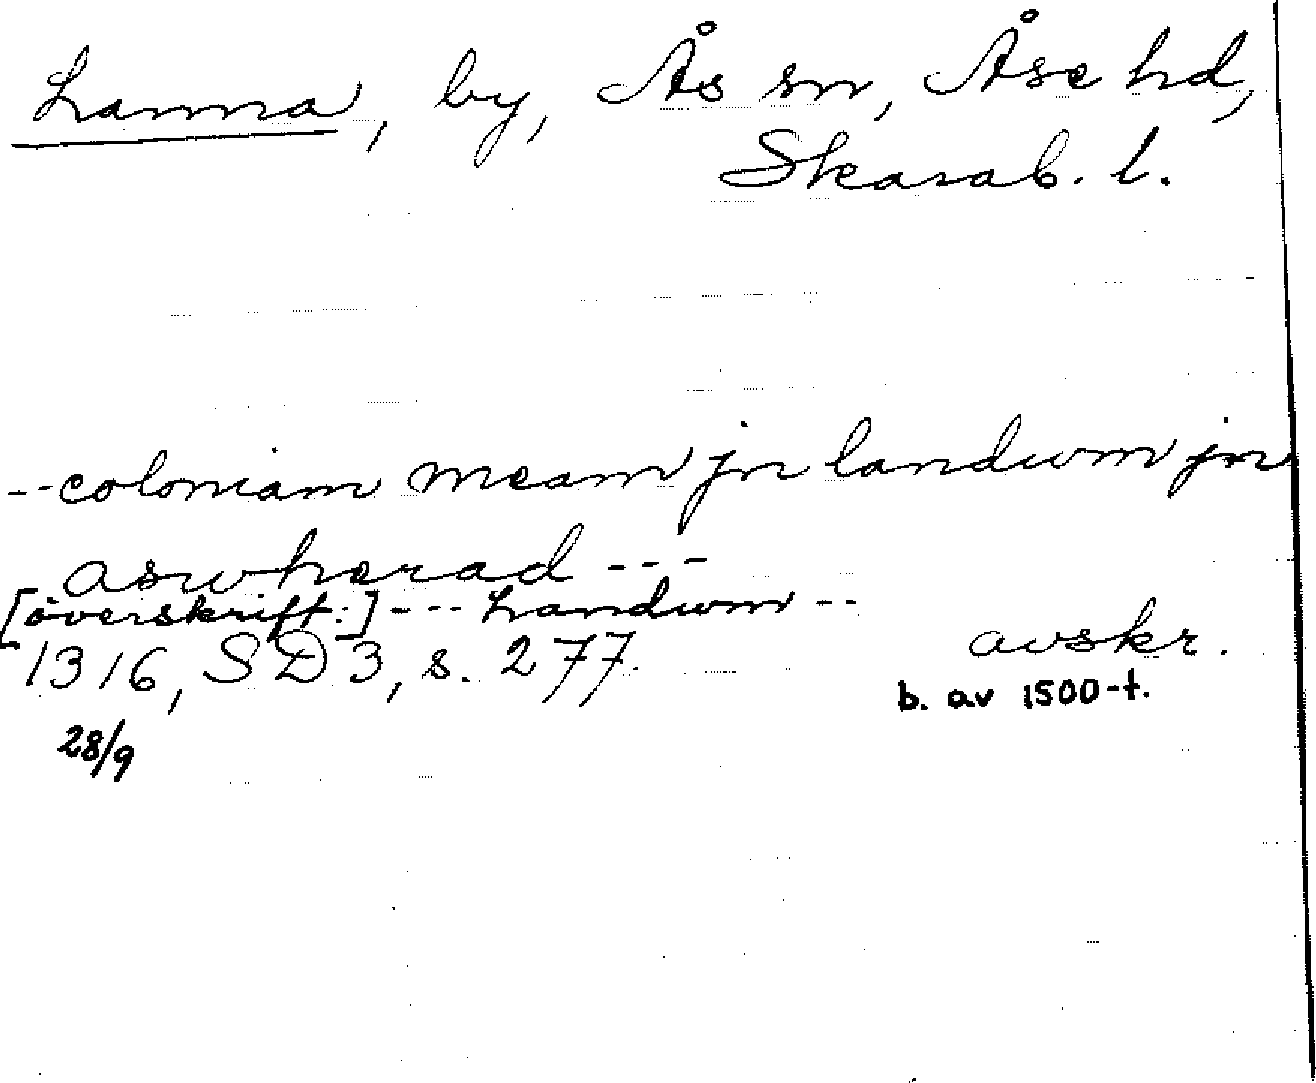 Lanna, by, Ås sn, Åse hd,
Skarab. l.
--coloniam meam jn landwm jn
aswherad ---
[överskrift:] --- Landwm --
1316, SD 3, s. 277.
avskr.
b. av 1500-t.
28/9